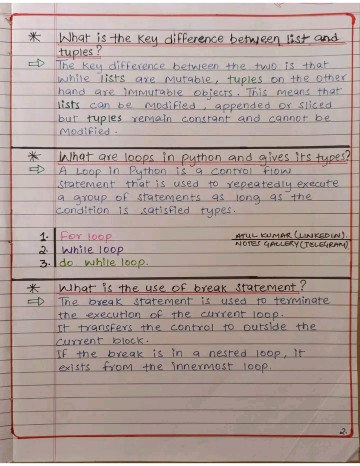 * What is the key difference between list and
tuples?
⇒ The key difference between the two is that
while lists are mutable, tuples on the other
hand are immutable objects. This means that
lists can be modified, appended or sliced
but tuples remain constant and cannot be
modified.
* What are loops in python and gives its types?
⇒ A Loop in Python is a control flow
statement that is used to repeatedly execute
a group of statements as long as the
condition is satisfied types.
1. For loop
2. While loop
3. do. while loop.
ATUL KUMAR (LINKEDIN).
NOTES GALLERY (TELEGRAM)
* What is the use of break statement?
⇒ The break statement is used to terminate
the execution of the current loop.
It transfers the control to outside the
current block.
If the break is in a nested loop, it
exists from the innermost loop.
2.